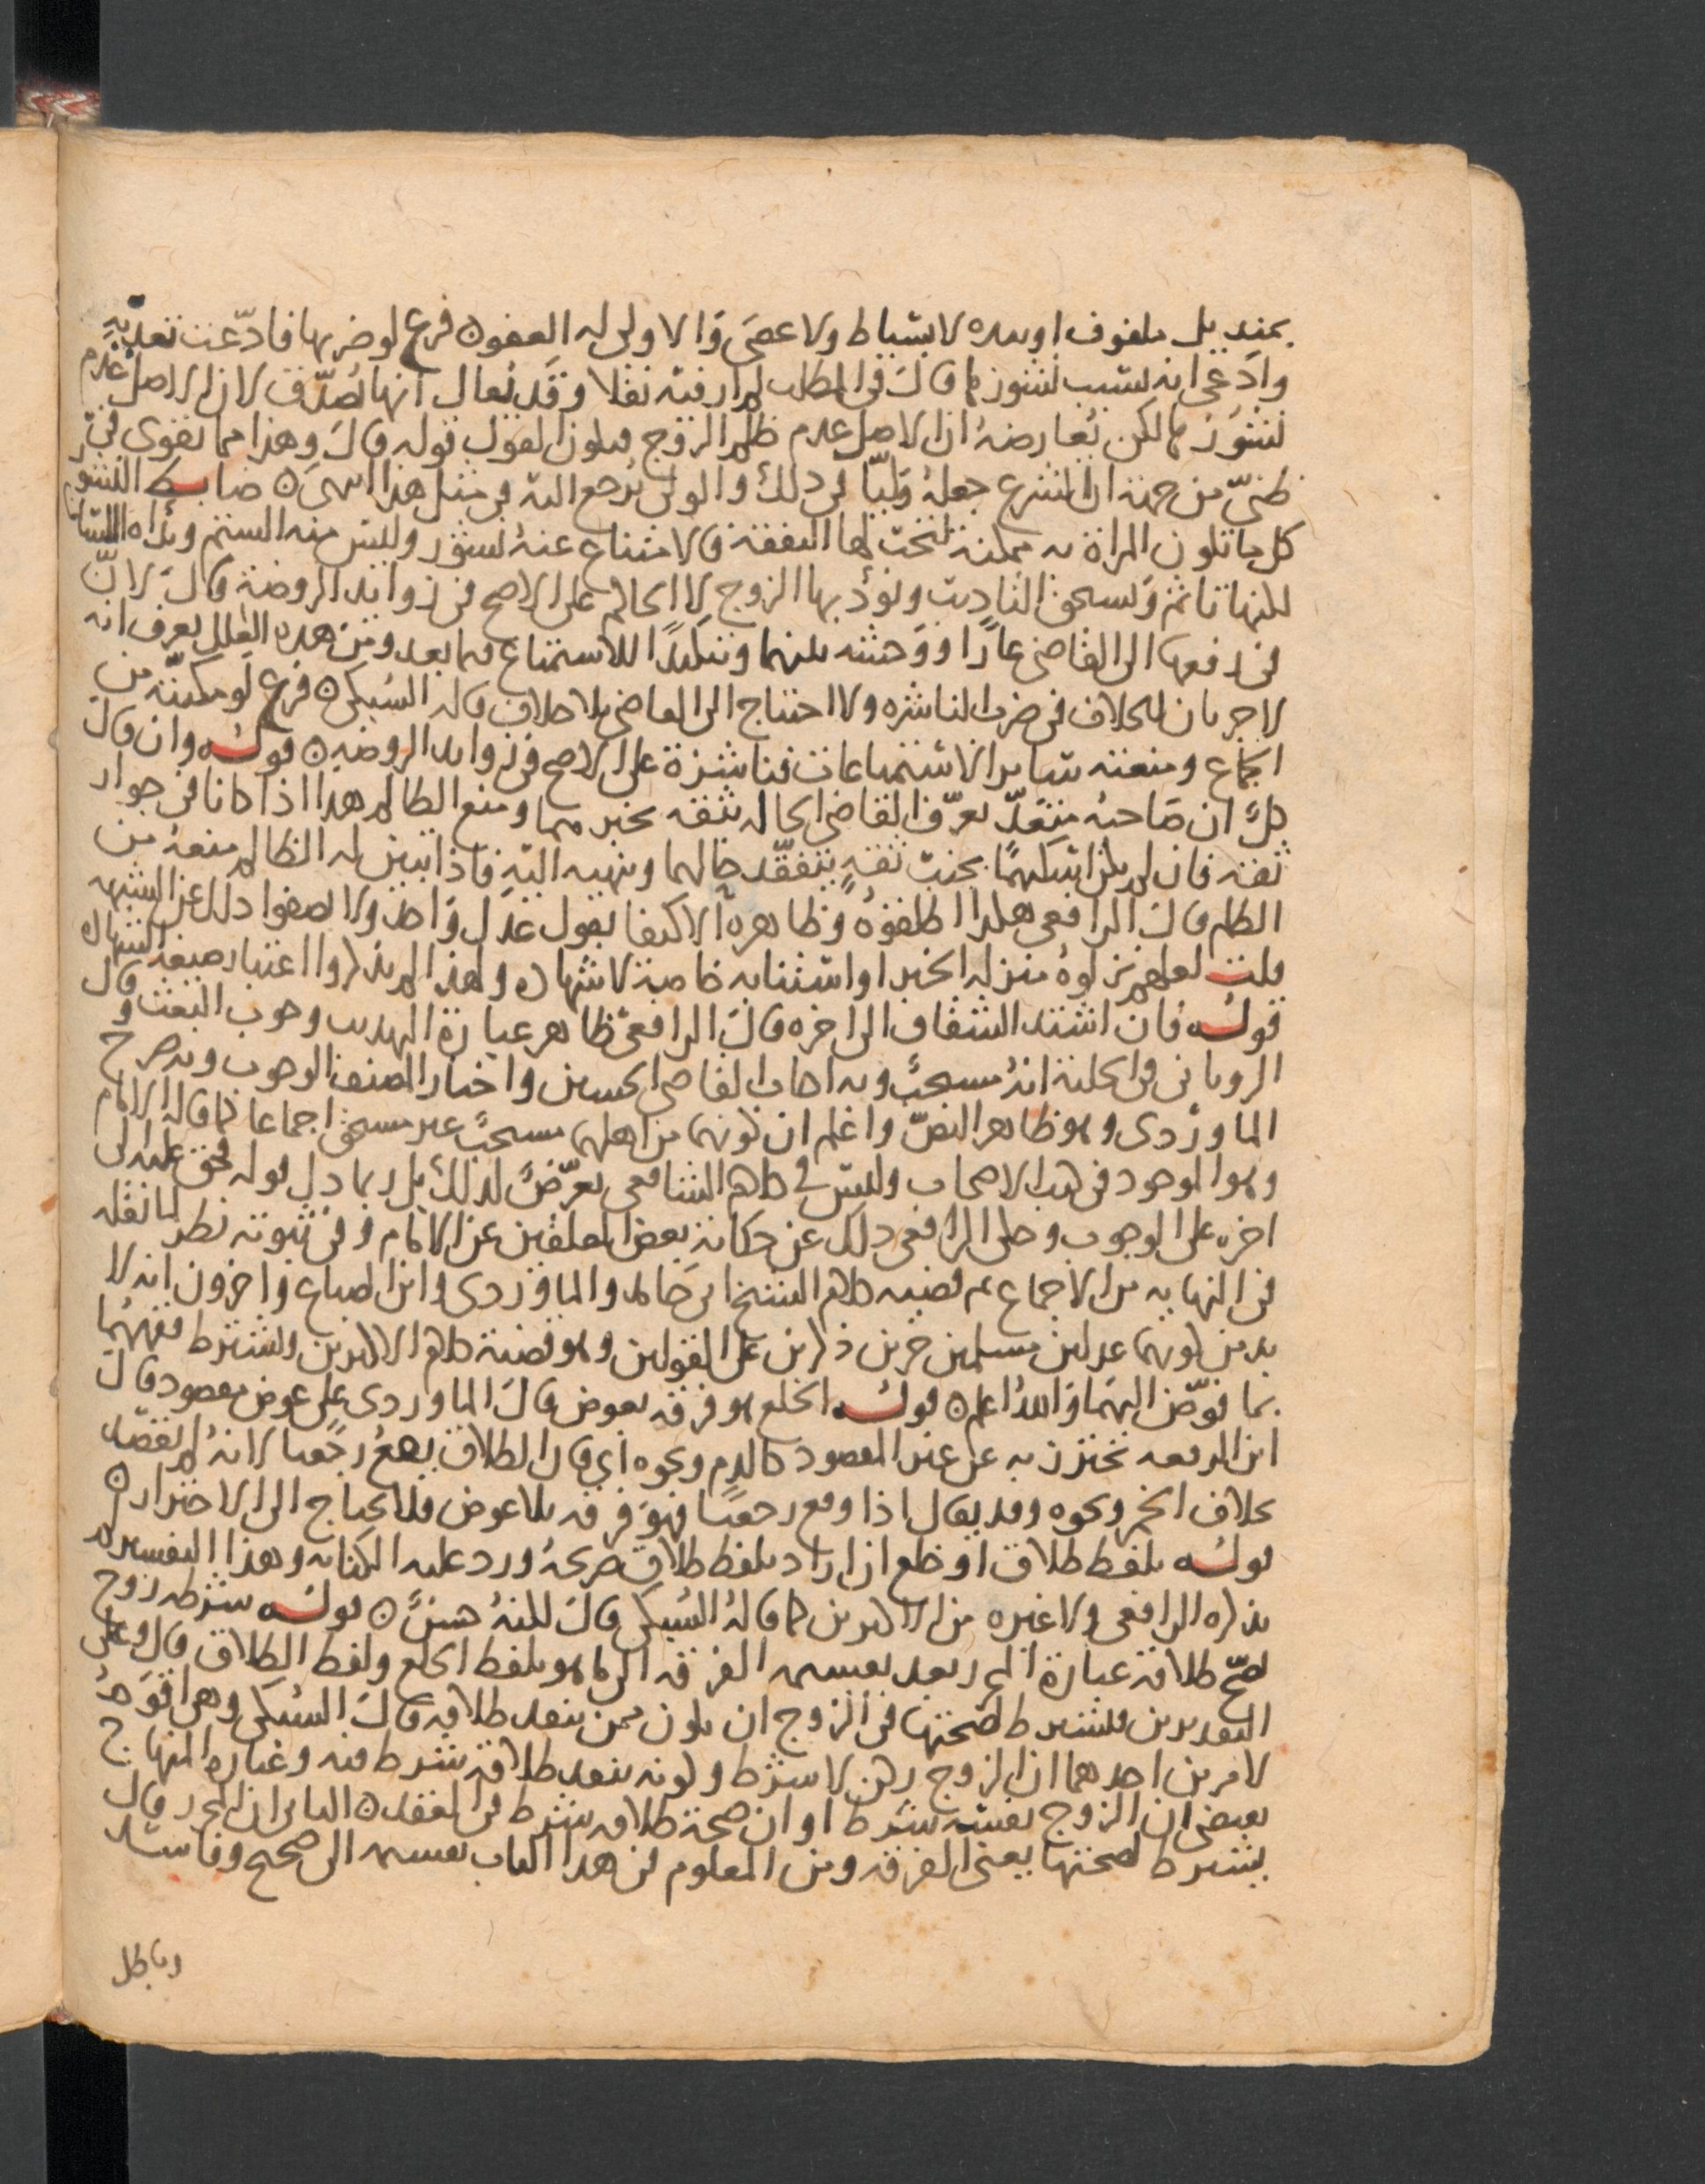 بمنديل ملفوف او بيده لا بسياط ولا عصى والاولى له العفو ٥ فرع لو ضربها فادّعت تعديه
وادعى انه بسبب نشوز قال في المطلب لم ار فيه نقلا وقد يقال انها تصدّق لان الاصل عدم
نشوزها لكن يعارضه ان الاصل عدم ظلم الزوج فيكون القول قوله قال وهذا مما يقوى في
ظنيّ من جهة ان الشرع جعله وليّا في ذلك والولي يُرجع اليه في مثل هذا انتهى ٥ ضابط النشوز
كل ما تكون المراة به ممكنة تجب لها النفقة فالامتناع عنه نشوز وليس منه الشتم وبذاه اللسان
لكنها تاثم وتستحق التاديب ويؤدبها الزوج لا الحاكم على الاصح في زوائد الروضة قال لانّ
في رفعها الى القاضي عارًا ووحشة بينهما وتنكيدًا للاستمتاع فيما بعد ومن هذه العلل يعرف انه
لا جريان للخلاف في ضرب الناشزه ولا احتياج الى القاضي بلا خلاف قاله السبكي ٥ فرع لو مكنته من
الجماع ومنعته سائر الاستمتاعات فناشزة على الاصح في زوائد الروضه ٥ قوله وان قال
كلٌ ان صاحبه متعدّ تعرّف القاضي الحال بثقه يخبرهما ومنع الظالم هذا اذا كانا في جوار
ثقة فان لم يكن اسكنهما بجنب ثقةٍ يتفقّد حالهما وينهيه اليه فاذا تبين له الظالم منعه من
الظلم قال الرافعي هكذا اطلقوه وظاهره الاكتفا بقول عدل واحد ولا يصفوا ذلك عن الشبهه
قلت لعلهم نزلوه منزلة الخبر او استثنابه خاصة لا شهاده ولهذا لم يذكروا اعتبار صيغة الشهاده
قوله فان اشتد الشقاق الى اخره قال الرافعي ظاهر عبارة التهذيب وجوب البعث وقال
الروياني في الحلية انه مستحبٌ وبه اجاب القاضي الحسين واختار المصنف الوجوب وبه صرح
الماوردي وهو ظاهر النصّ واعلم ان كونهما من اهلهما مستحبٌ غير مستحق اجماعا كما قاله الامام
وهو الموجود في كتب الاصحاب وليس في كلام الشافعي تعرّضٌ لذلك بل ربما دل قوله فحق عليه الى
اخره على الوجوب وحكى الرافعي ذلك عن حكاية بعض المعلقين عن الامام وفي ثبوته نظر لما نقله
في النهايه من الاجماع ثم قضية كلام الشيخ ابي حامد والماوردي وابن الصباغ واخرون انه لا
بد من كونهما عدلين مسلمين حرين ذكرين على القولين وهو قضية كلام الاكثرين ويشترط فقههما
بما فوّض اليهما والله اعلم ٥ قوله الخلع هو فرقة بعوض قال الماوردي على عوض مقصود قال
ابن الرفعه يحترز به عن غير المقصود كالدم ونحوه اي فان الطلاق يقع رجعيا لانه لم يقصد
بخلاف الخمر ونحوه وقد يقال اذا وقع رجعيا فهو فرقة بلا عوض فلا يحتاج الى الاحتراز ٥
قوله بلفظ طلاق او خلع ان اراد بلفظ طلاق صريحهُ ورد عليه الكنايه وهذا التفسير لم
يذكره الرافعي ولا غيره من الاكثرين كما قاله السبكي قال لكنهُ حسنٌ ٥ قوله شرطه زوج
يصحّ طلاقه عبارة المحرر بعد تقسيمه الفرقة الى ما هو بلفظ الخلع ولفظ الطلاق قال وعلى
التقديرين فيشترط لصحتها في الزوج ان يكون ممن ينفذ طلاقه قال السبكي وهي اقوم
لامرين احدهما ان الزوج ركن لا شرط وكونه ينفذ طلاقه شرط فيه وعبارة المنهاج
تقتضي ان الزوج نفسه شرط او ان صحة طلاقه شرط في العقد ٥ الثاني ان المحرر قال
يشترط لصحتها يعني الفرقه ومن المعلوم في هذا الباب تقسيمه الى صحيح وفاسد
وباطل